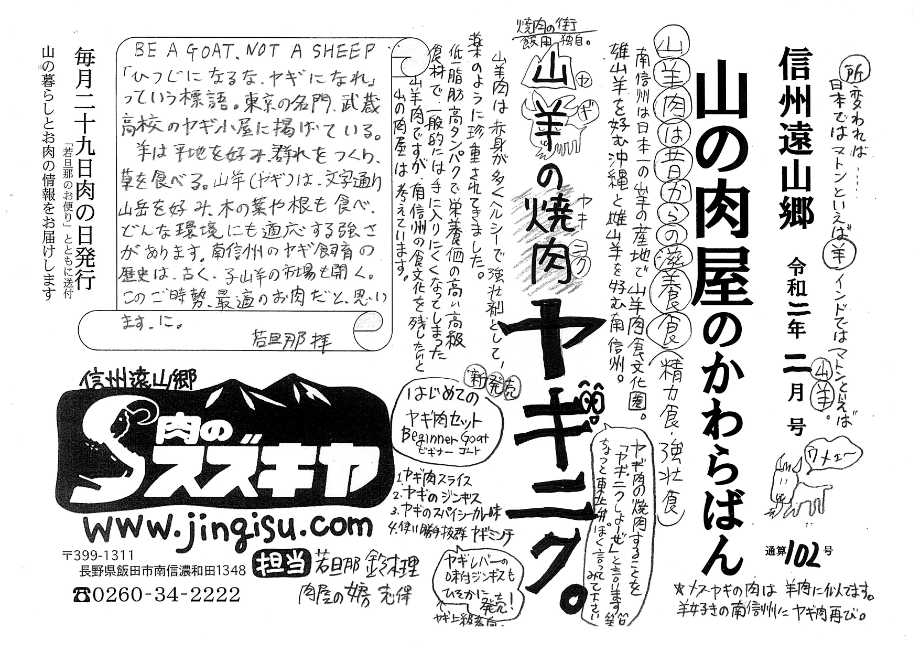 所変われば…
日本ではマトンといえば“羊”
インドではマトンといえば
“山羊”。
ウメェー
信州遠山郷 令和三年 二月号
山の肉屋のかわらばん
通算102号
※メスヤギの肉は羊肉に似てます。
羊好きの南信州にヤギ肉再び。
山羊肉は昔からの滋養食(精力食・強壮食)
南信州は日本一の山羊の産地で山羊肉食文化圏。
雄山羊を好む沖縄と雌山羊を好む南信州。
焼肉の街
飯田独自。
山羊の焼肉
ヤギ
ヤキニク
ヤギニク。
ヤギ肉の焼肉することを
「ヤギニクしようぜ」と言います(笑)
なっと東北弁ぽく言ってみて下さい
山羊肉は赤身が多くヘルシーで強壮剤として、
薬のように珍重されてきました。
低脂肪高タンパクで栄養価の高い高級
食材で、一般的には手に入りにくくなってしまった
山羊肉ですが、南信州の食文化を残したいと
山の肉屋は考えています。
新発売
はじめての
ヤギ肉セット
Beginner Goat
ビギナーゴート
1.ヤギ肉スライス
2.ヤギのジンギス
3.ヤギのスパイシーカレー味
4.使い勝手抜群ヤギミンチ
ヤギレバーの
味付ジンギスも
ひそかに発売!
BE A GOAT, NOT A SHEEP
「ひつじになるな、ヤギになれ」
っていう標語。東京の名門、武蔵
高校のヤギ小屋に掲げている。
羊は平地を好み、群れをつくり、
草を食べる。山羊(ヤギ)は、文字通り
山岳を好み、木の葉や根も食べ、
どんな環境にも適応する強さ
があります。南信州のヤギ飼育の
歴史は、古く、子山羊の市場も開く。
このご時勢、最適のお肉だと、思い
ます、に。
若旦那 拝
毎月二十九日肉の日発行
「若旦那のお便り」とともに送付
山の暮らしとお肉の情報をお届けします
信州遠山郷
肉の
スズキヤ
www.jingisu.com
〒399-1311
長野県飯田市南信濃和田1348
☎0260-34-2222
担当 若旦那 鈴木理
肉屋の女房